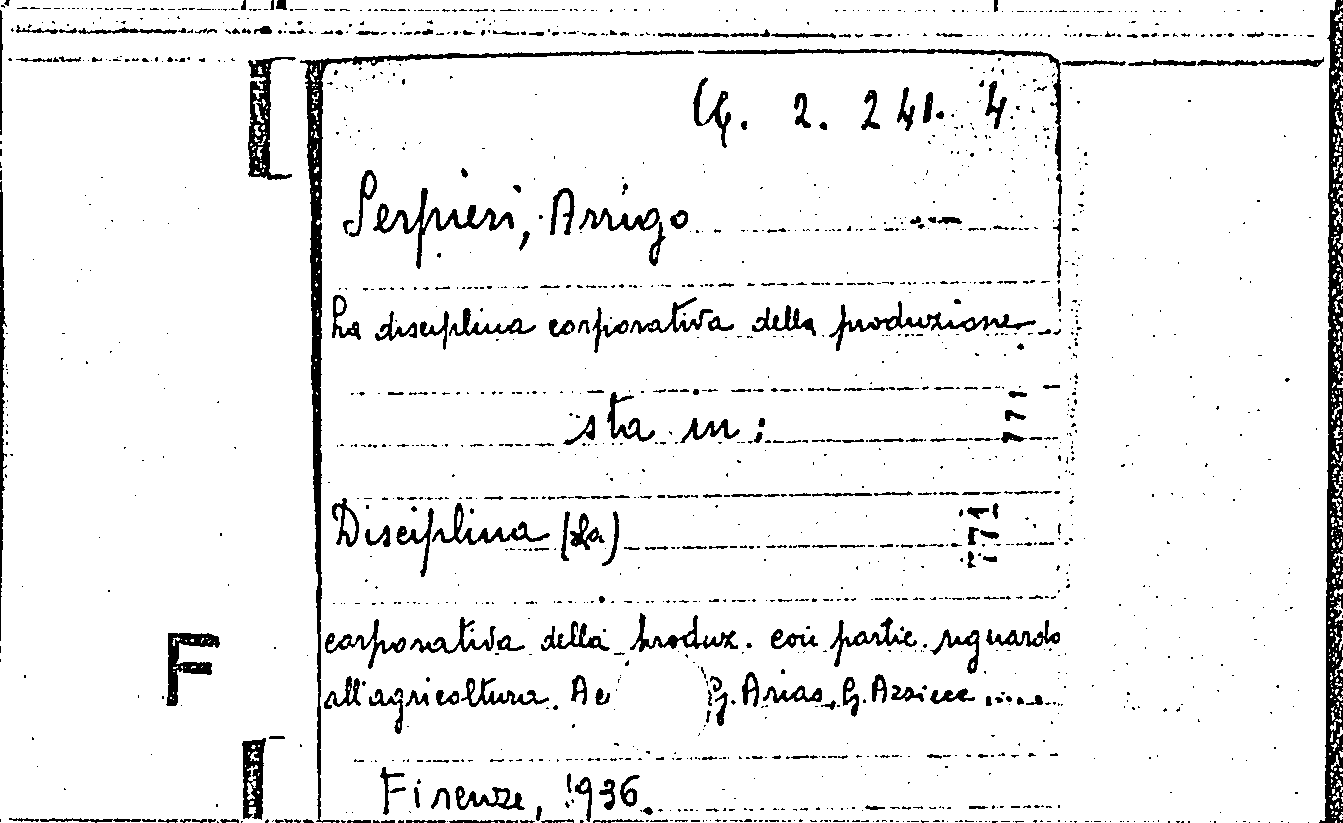 G. 2. 241. 4
Serpieri, Arrigo
La disciplina corporativa della produzione
sta in:
771
Disciplina (La)
771
corporativa della produz. con partic. riguardo
all'agricoltura. G. Arias, G.
F
Firenze, 1936.